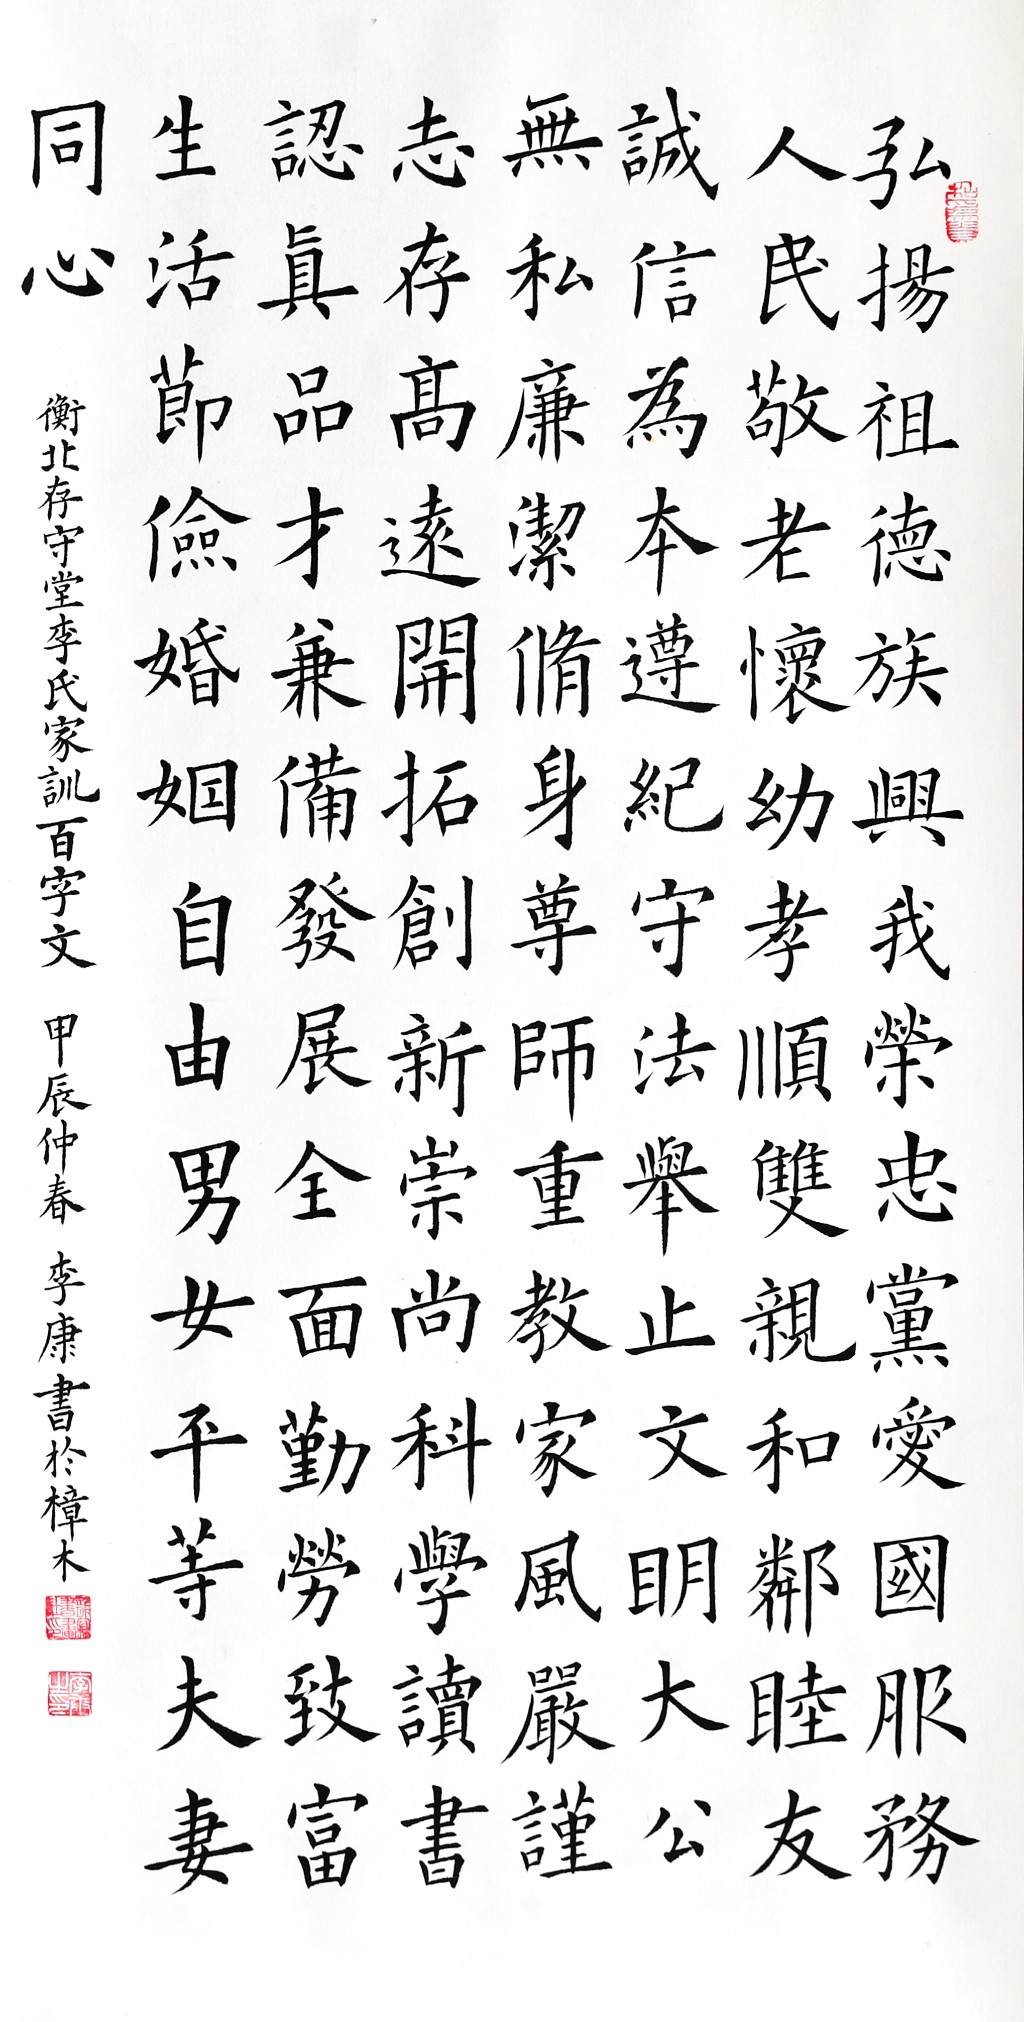 弘揚祖德族興我榮忠黨愛國服務
人民敬老懷幼孝順雙親和鄰睦友
誠信為本遵紀守法舉止文明大公
無私廉潔脩身尊師重教家風嚴謹
志存高遠開拓創新崇尚科學讀書
認真品才兼備發展全面勤勞致富
生活節儉婚姻自由男女平等夫妻
同心
衡北存守堂李氏家訓百字文 甲辰仲春 李康書於樟木